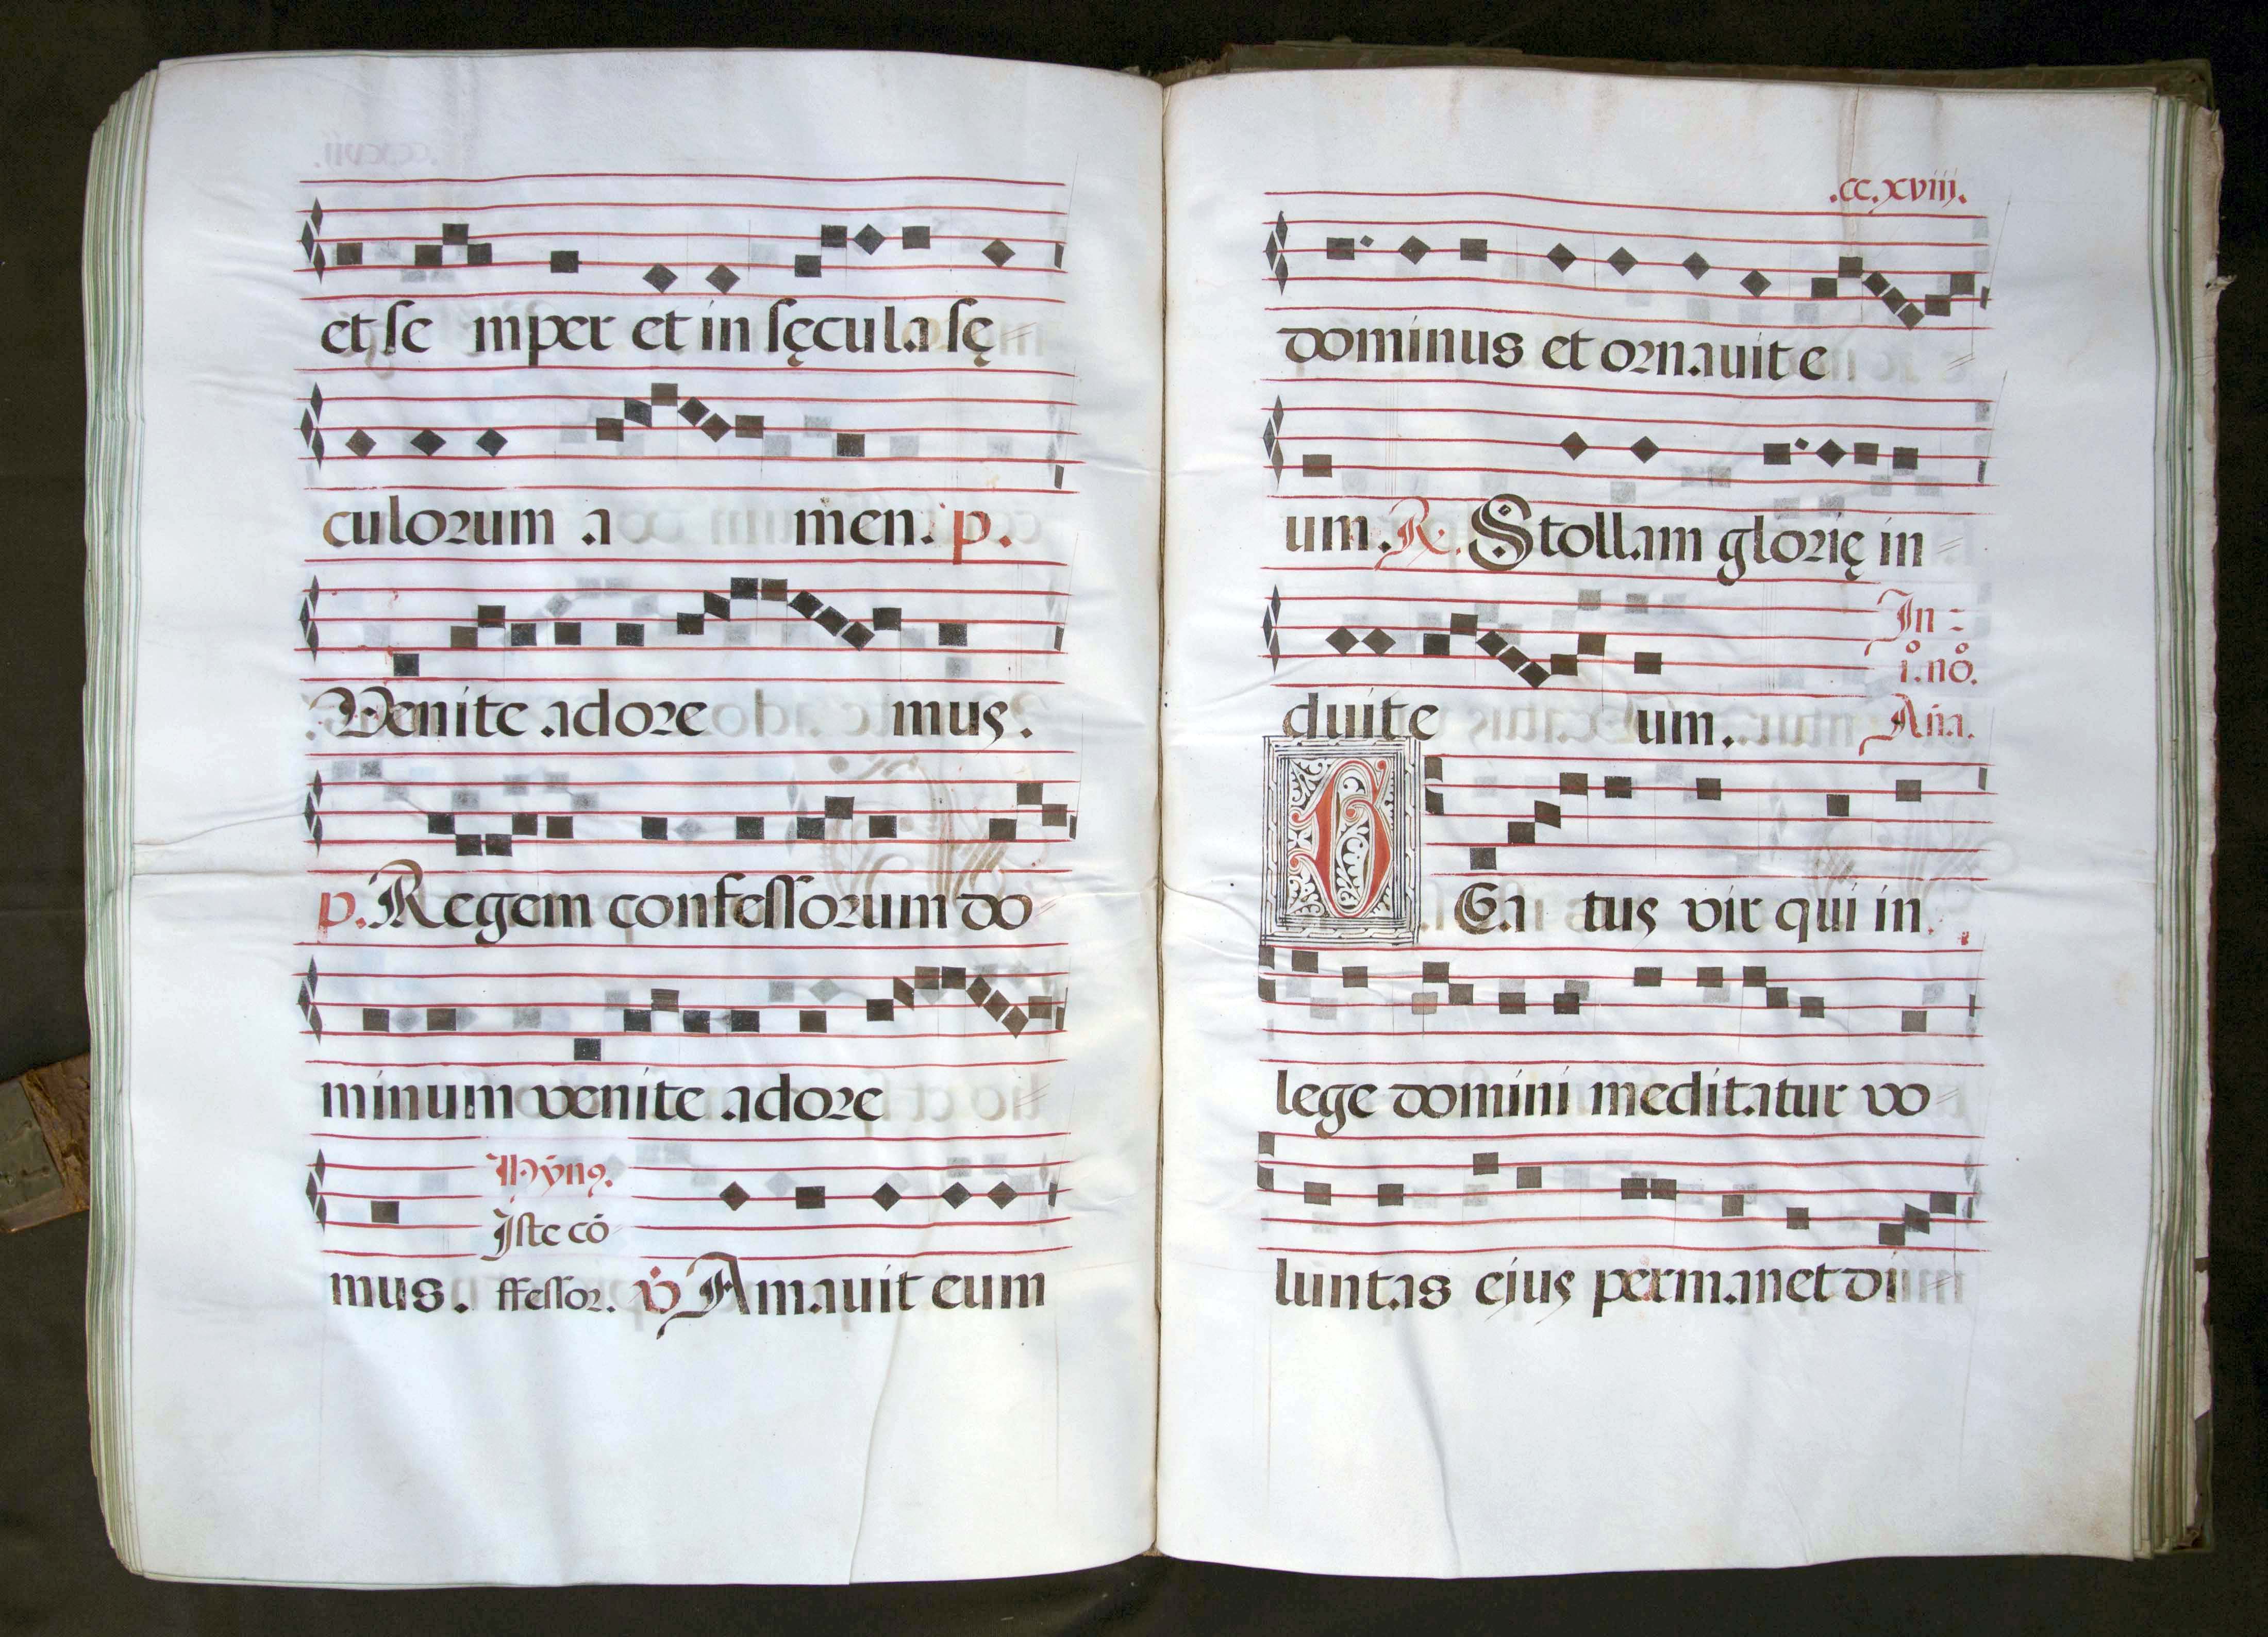 et se mper et in sęcula sę
culorum a men. p.
Venite adore mus.
p. Regem confessorum do
minum venite adore
Hȳnꝰ.
Iste cō
mus. ffessor. ℣ Amauit eum
.cc.xviij.
dominus et ornauit e
um. ℟. Stollam glorię in
In =
i.º nº.
duit e um. Aña.
BEa tus vir qui in
lege domini meditatur vo
luntas ejus permanet di